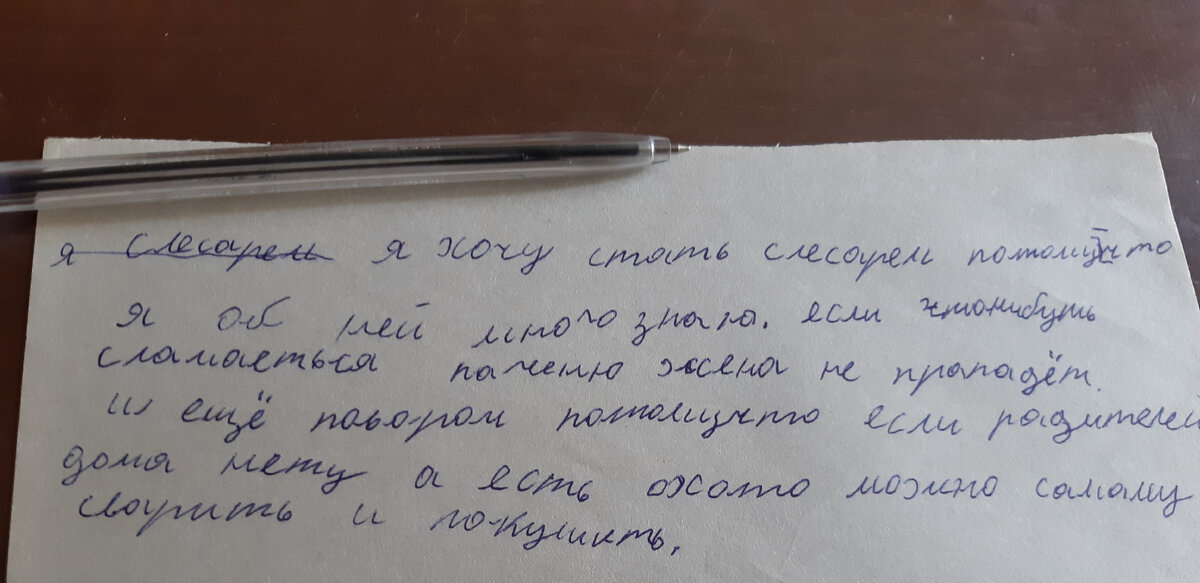 я слесарем я хочу стать слесарем потомучто
я об ней много знаю. если чтонибуть
сламаеться паченю жена не прападёт.
и ещё поваром потомучто если радителей
дома нету а есть охото можно самаму
сварить и покушать.